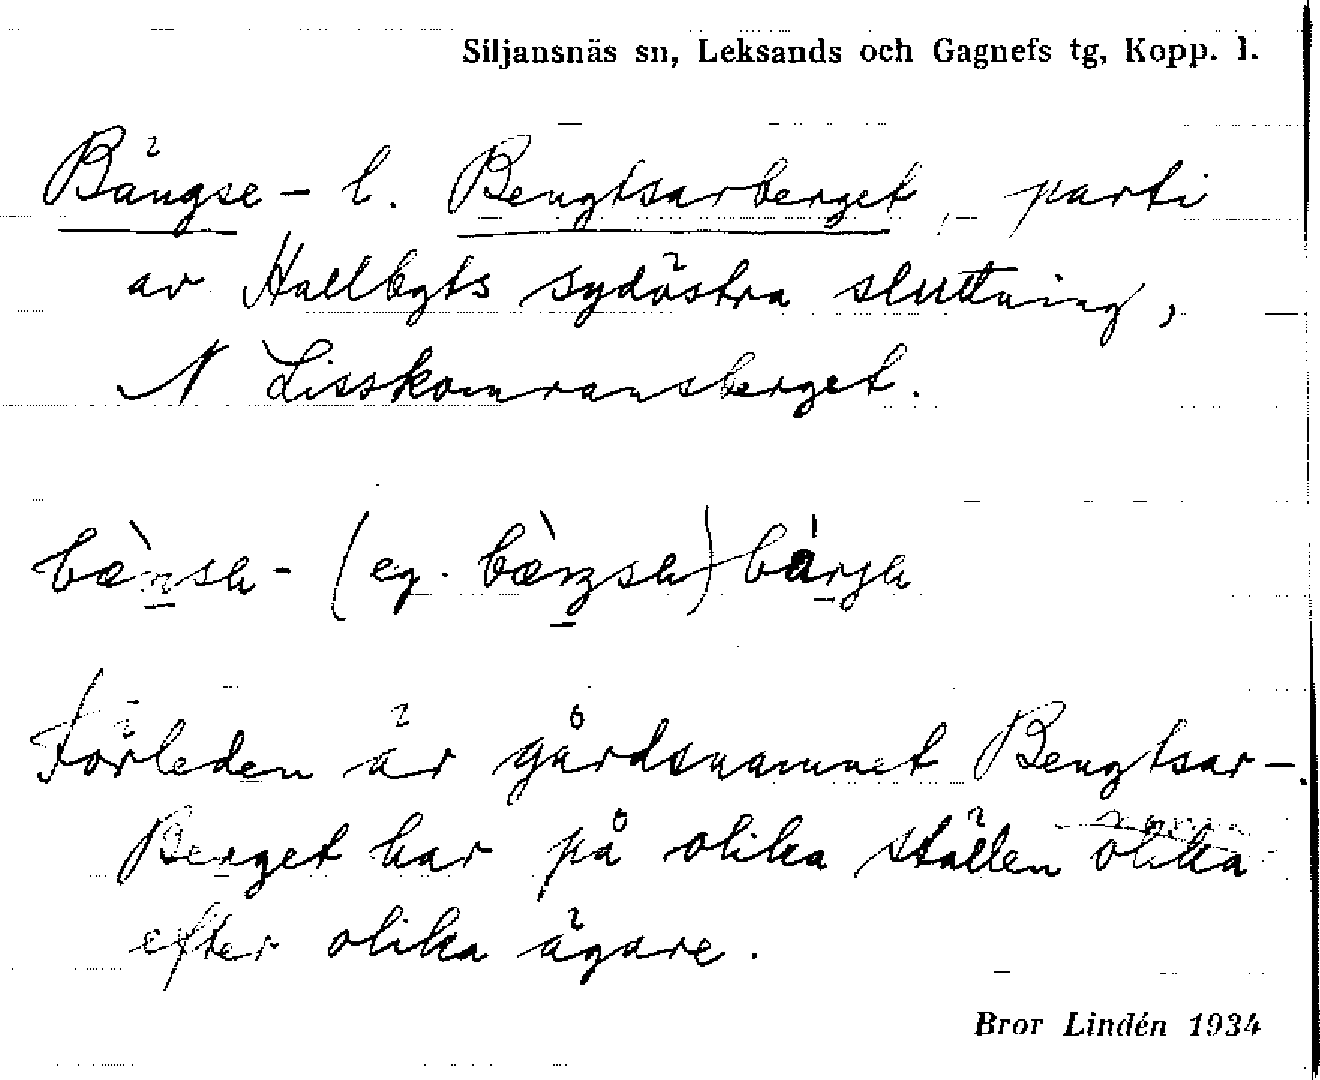 Siljansnäs sn, Leksands och Gagnefs tg, Kopp. l.
Bängse- l. Bengtsarberget, parti
av Hallbgts sydöstra sluttning,
N Lisskomransberget.
(eg.
Förleden är gårdsnamnet Bengtsar-.
Berget har på olika ställen olika
efter olika ägare.
Bror Lindén 1934